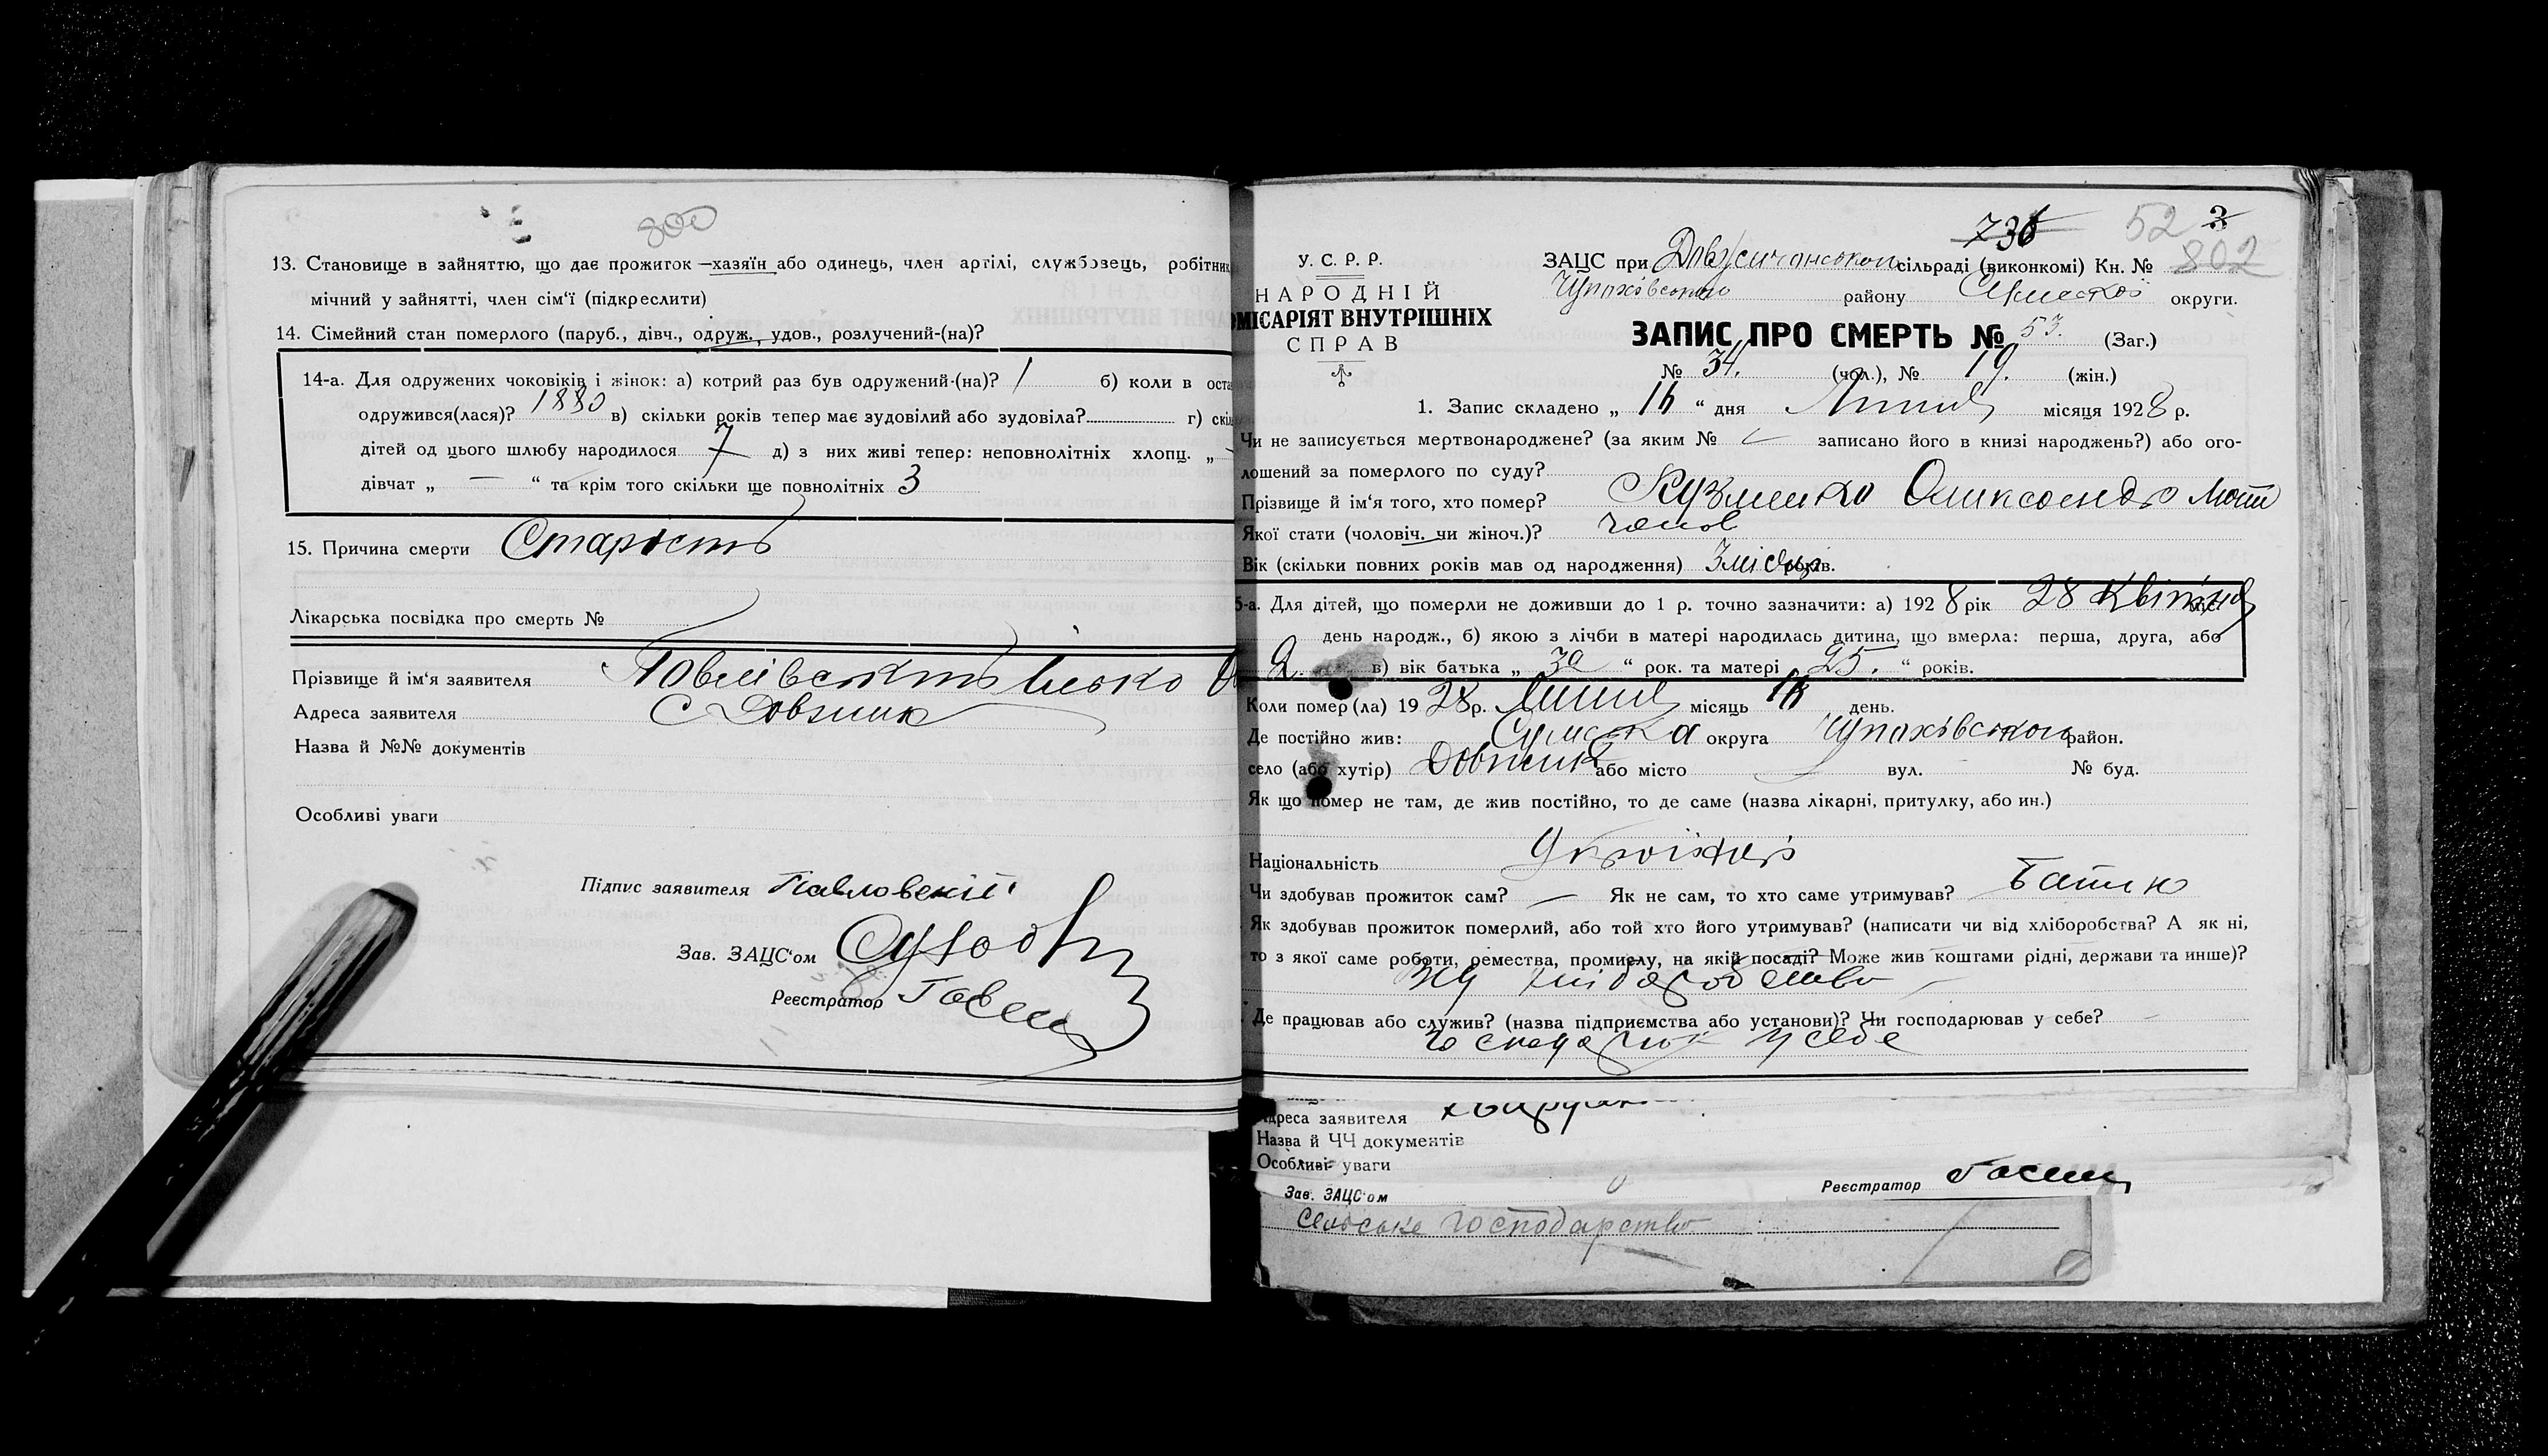 800
13. Становище в зайняттю, що дає прожиток —хазяїн або одинець, член артілі, службовець, робітник
мічний у зайнятті, член сім'ї (підкреслити)
14. Сімейний стан померлого (паруб., дівч., одруж., удов., розлучений-(на)?
14-а. Для одружених чоковіків і жінок: а) котрий раз був одружений-(на)? 1 б) коли в оста
одружився(лася)? 1880 в) скільки років тепер має зудовілий або зудовіла? г) скіл
дітей од цього шлюбу народилося 7 д) з них живі тепер: неповнолітніх хлопц. „
дівчат „ — “ та крім того скільки ще повнолітніх 3
15. Причина смерти Старість
Лікарська посвідка про смерть №
Прізвище й ім'я заявителя
Адреса заявителя С Довжик
Назва й №№ документів
Особливі уваги
Підпис заявителя Павловский
Зав. ЗАЦС'ом
Реєстратор
736 52 3
802
У. С. Р. Р.
НАРОДНІЙ
МІСАРІЯТ ВНУТРІШНІХ
СПРАВ
ЗАЦС при сільраді (виконкомі) Кн. №
району округи.
ЗАПИС ПРО СМЕРТЬ № 53. (Заг.)
№ 34. (чол.), № 19. (жін.)
1. Запис складено „ 16 “ дня Липня місяця 1928 р.
Чи не записується мертвонароджене? (за яким № записано його в книзі народжень?) або ого-
лошений за померлого по суду?
Прізвище й ім'я того, хто помер? Кузменко Олександр
Якої стати (чоловіч. чи жіноч.)? чолов
Вік (скільки повних років мав од народження) 3 місяці років.
5-а. Для дітей, що померли не доживши до 1 р. точно зазначити: а) 1928 рік 28 Квітня
день народж., б) якою з лічби в матері народилась дитина, що вмерла: перша, друга, або
2. в) вік батька „ 30 “ рок. та матері „ 25. “ років.
Коли помер(ла) 1928 р. Липня місяць 16 день.
Де постійно жив: Сумська округа район.
село (або хутір) Довжик або місто — вул. № буд.
Як що помер не там, де жив постійно, то де саме (назва лікарні, притулку, або ин.)
Національність
Чи здобував прожиток сам? — Як не сам, то хто саме утримував? Батько
Як здобував прожиток померлий, або той хто його утримував? (написати чи від хліборобства? А як ні,
то з якої саме роботи, ремества, промислу, на якій посаді? Може жив коштами рідні, держави та инше)?
хліборобство
Де працював або служив? (назва підприємства або установи)? Чи господарював у себе?
у себе
Адреса заявителя
Назва й ЧЧ документів
Особливі уваги
Зав. ЗАЦС'ом Реєстратор
сельське господарство